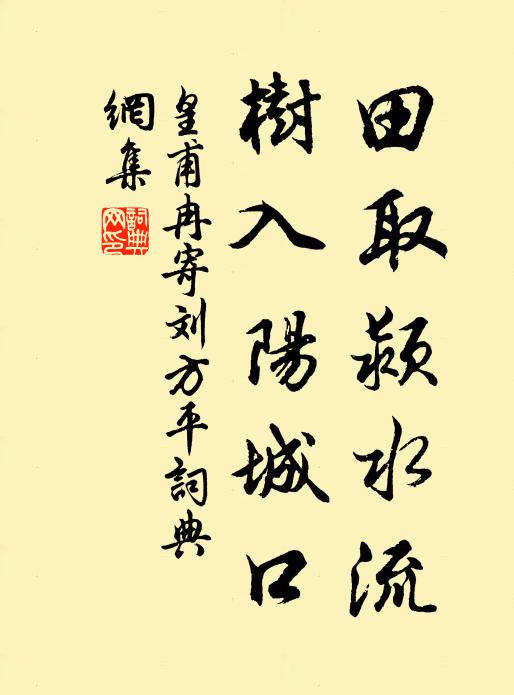 田取潁水流
樹入陽城口
皇甫冉寄刘方平詞典
網集
詞典網印